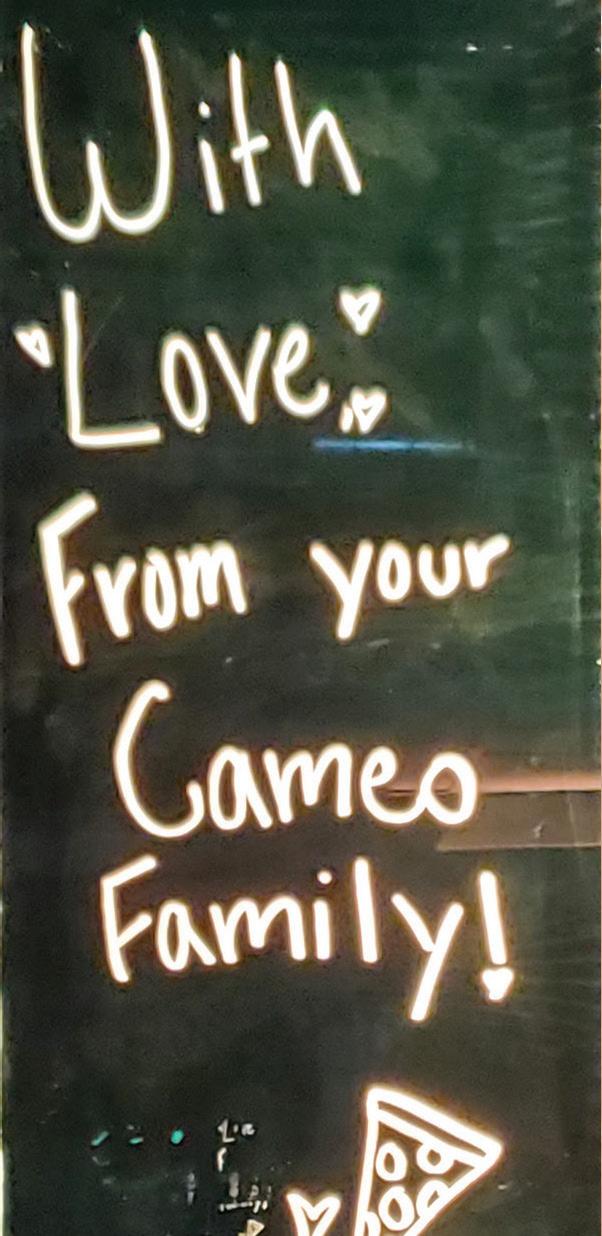 With
Love.
From your
Cameo
Family!